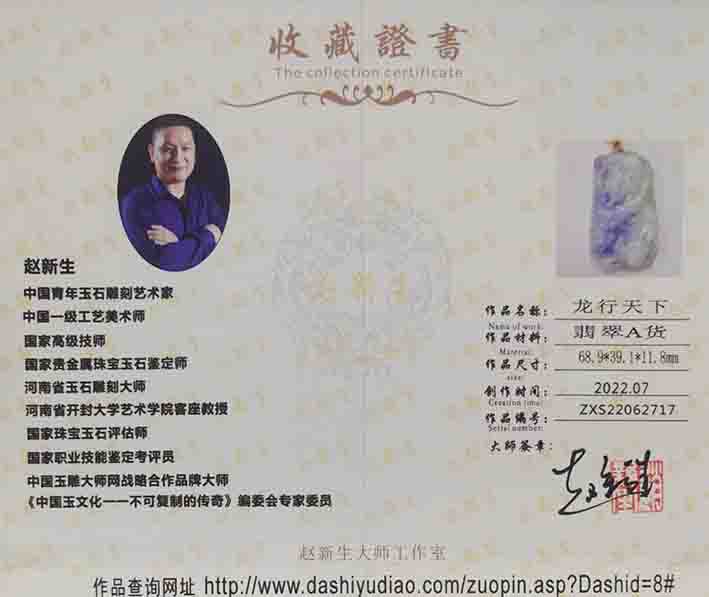 收藏證書
The collection certificate
赵新生
中国青年玉石雕刻艺术家
中国一级工艺美术师
国家高级技师
国家贵金属珠宝玉石鉴定师
河南省玉石雕刻大师
河南省开封大学艺术学院客座教授
国家珠宝玉石评估师
国家职业技能鉴定考评员
中国玉雕大师网战略合作品牌大师
《中国玉文化一一不可复制的传奇》编委会专家委员
作品名称: 龙行天下
Name of work:
作品材料: 翡翠A货
Material:
作品尺寸: 68.9*39.1*11.8mm
size:
创作时间: 2022.07
Creation time:
作品编号: ZXS22062717
Serial number:
大师签章:
赵新生
赵新生大师工作室
作品查询网址 http://www.dashiyudiao.com/zuopin.asp?Dashid=8#